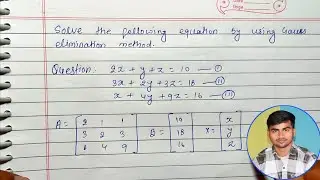 Solve the following equation by using Gauss
elimination method.
Question: 2x + y + z = 10 — ①
3x + 2y + 3z = 18 — ⑪
x + 4y + 9z = 16 — ⑪⑪
A = [2 1 1 B = [10 X = [x
3 2 3 18 y
1 4 9] 16] z]